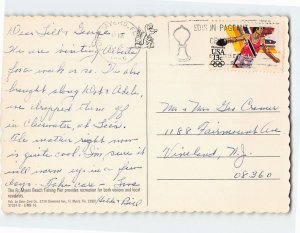 Dear Lill & George
We are visiting Alberta
for a week or so. We also
brought along Kip & Alda,
we dropped them off
in Clearwater, at Lees.
The water right now
is quite cool. I'm sure it
will warm up in a few
days. Take care - Love
The Ft. Myers Beach Fishing Pier provides recreation for both visitors and local
residents.
Hilda & Bill
EDISON PAGEANT
USA
13c
Mr & Mrs Geo Cramer
1188 Fairmount Ave
Vineland, N.J.
08360